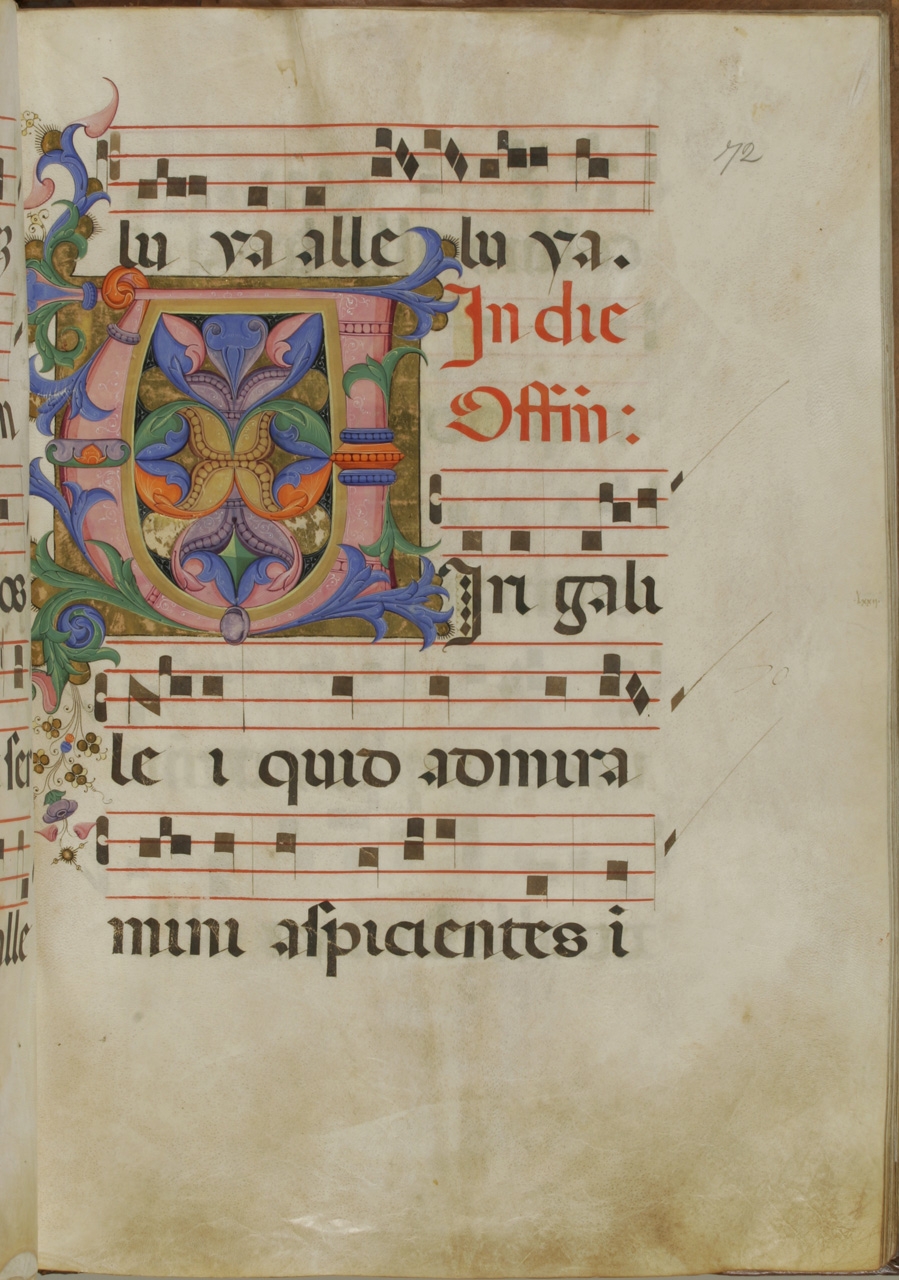 lu ya alle lu ya.
72
In die
Offiñ:
Viri gali
le i quid admira
mini aspicientes i